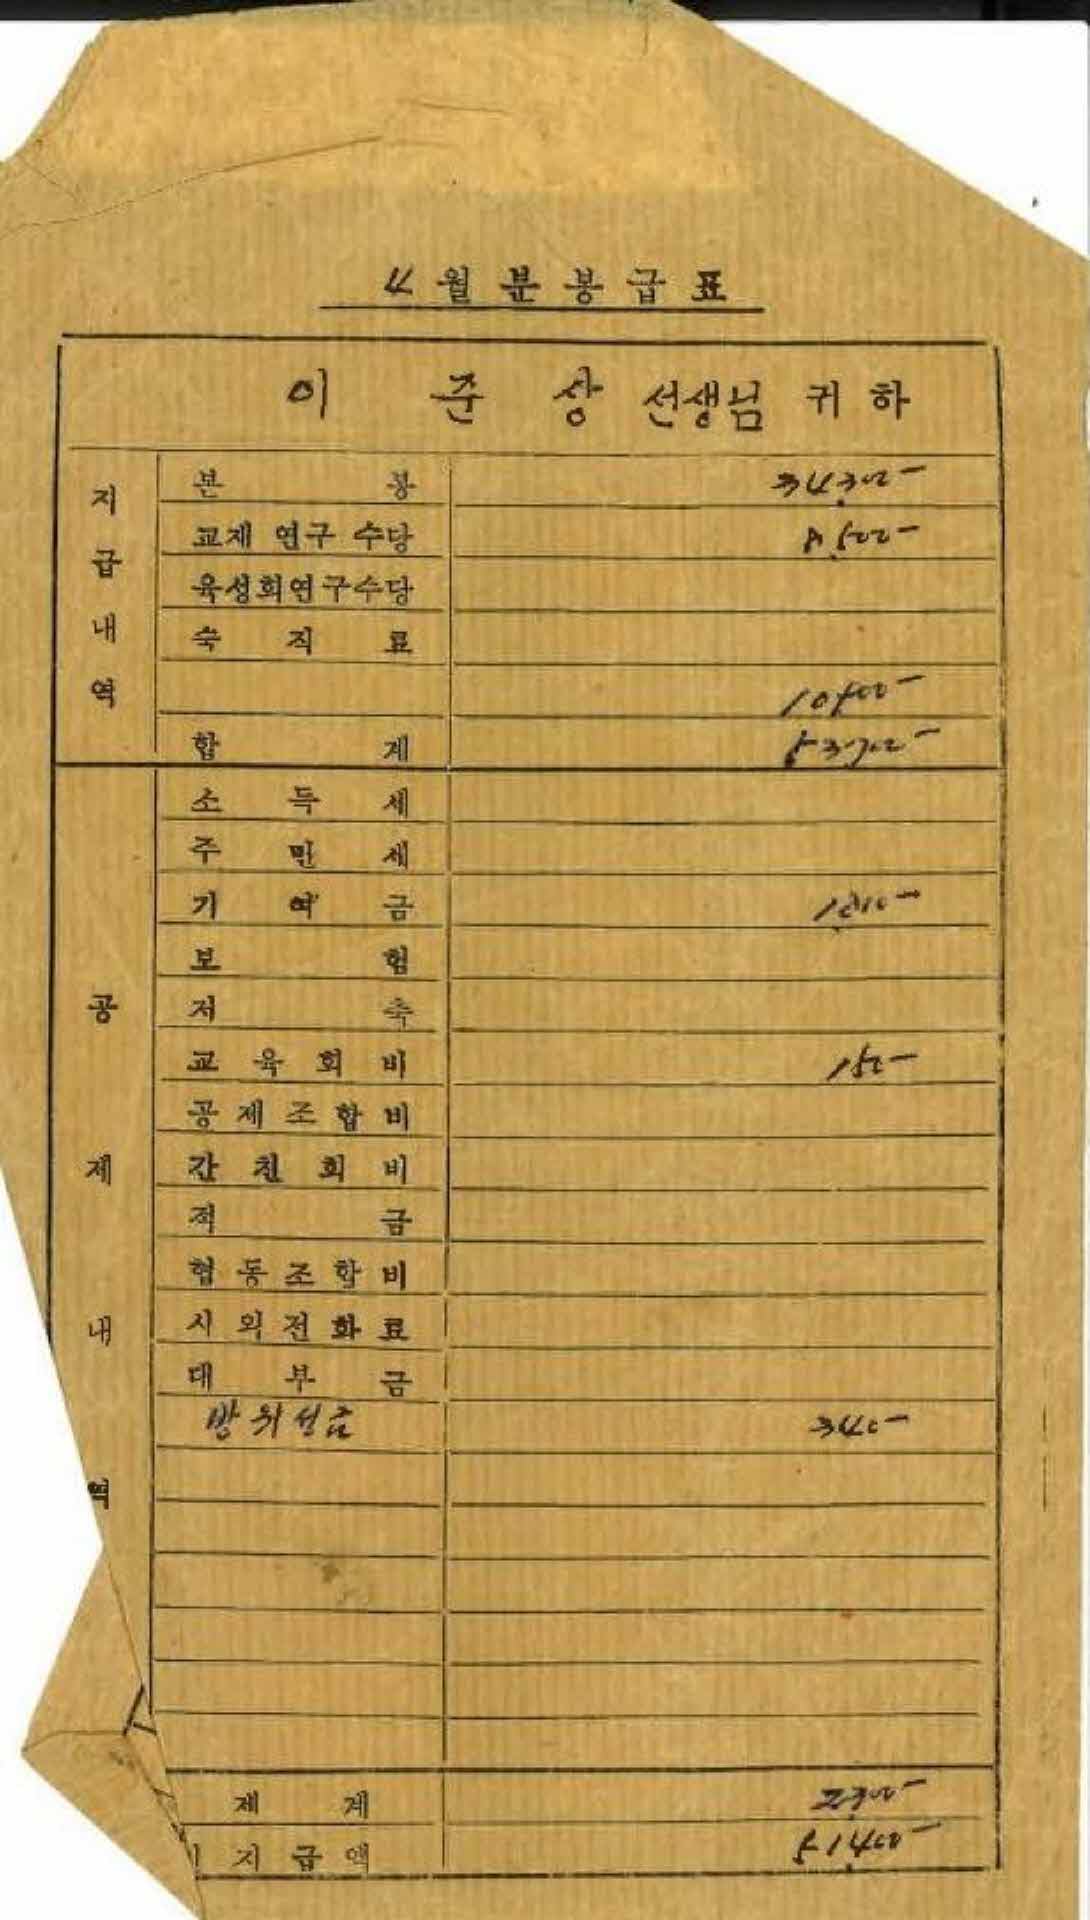 4월분봉급표
이 준 상 선생님 귀하
지급내역
본 봉 34,300-
교재 연구 수당 8,500-
육성회연구수당
숙 직 료
10900-
합 계 53,700-
공제내역
소 득 세
주 민 세
기 여 금 1,810-
보 험
저 축
교 육 회 비 150-
공 제 조 합 비
간 친 회 비
적 금
협 동 조 합 비
시 외 전 화 료
대 부 금
방위성금 340-
제 계 2,300-
지 급 액 51,400-